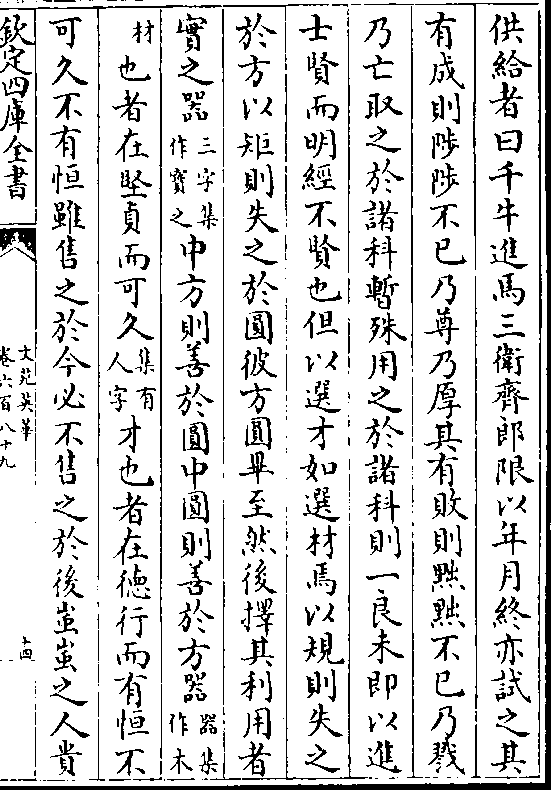 供給者曰千牛進馬三衛齊郎限以年月終亦試之其
有成則陟陟不已乃尊乃厚其有敗則黜黜不已乃戮
乃亡取之於諸科暫殊用之於諸科則一良未即以進
士賢而明經不賢也但以選才如選材焉以規則失之
於方以矩則失之於圓彼方圓畢至然後擇其利用者
實之器三字集作寶之中方則善於圓中圓則善於方器器集作木
材也者在堅貞而可久集有人字才也者在徳行而有恒不
可久不有恒雖售之於今必不售之於後蚩蚩之人貴
欽定四庫全書
文苑英華
卷六百八十九
十四